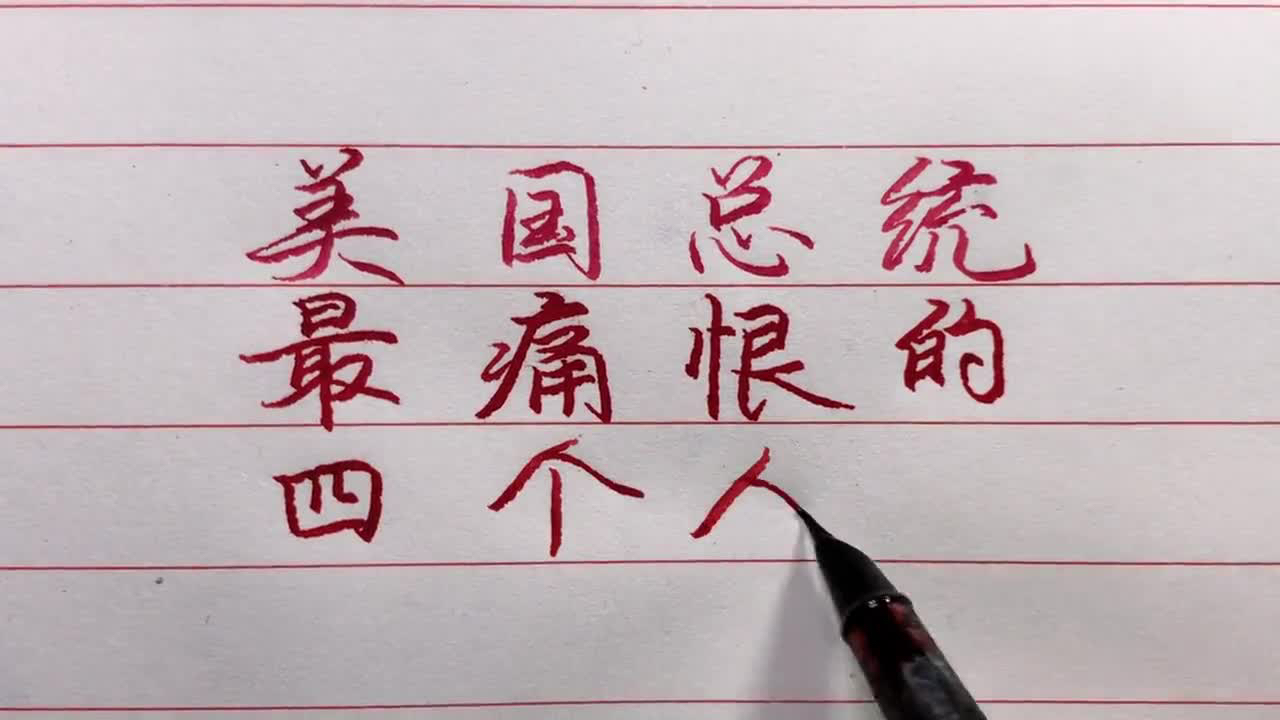 美国总统
最痛恨的
四个人